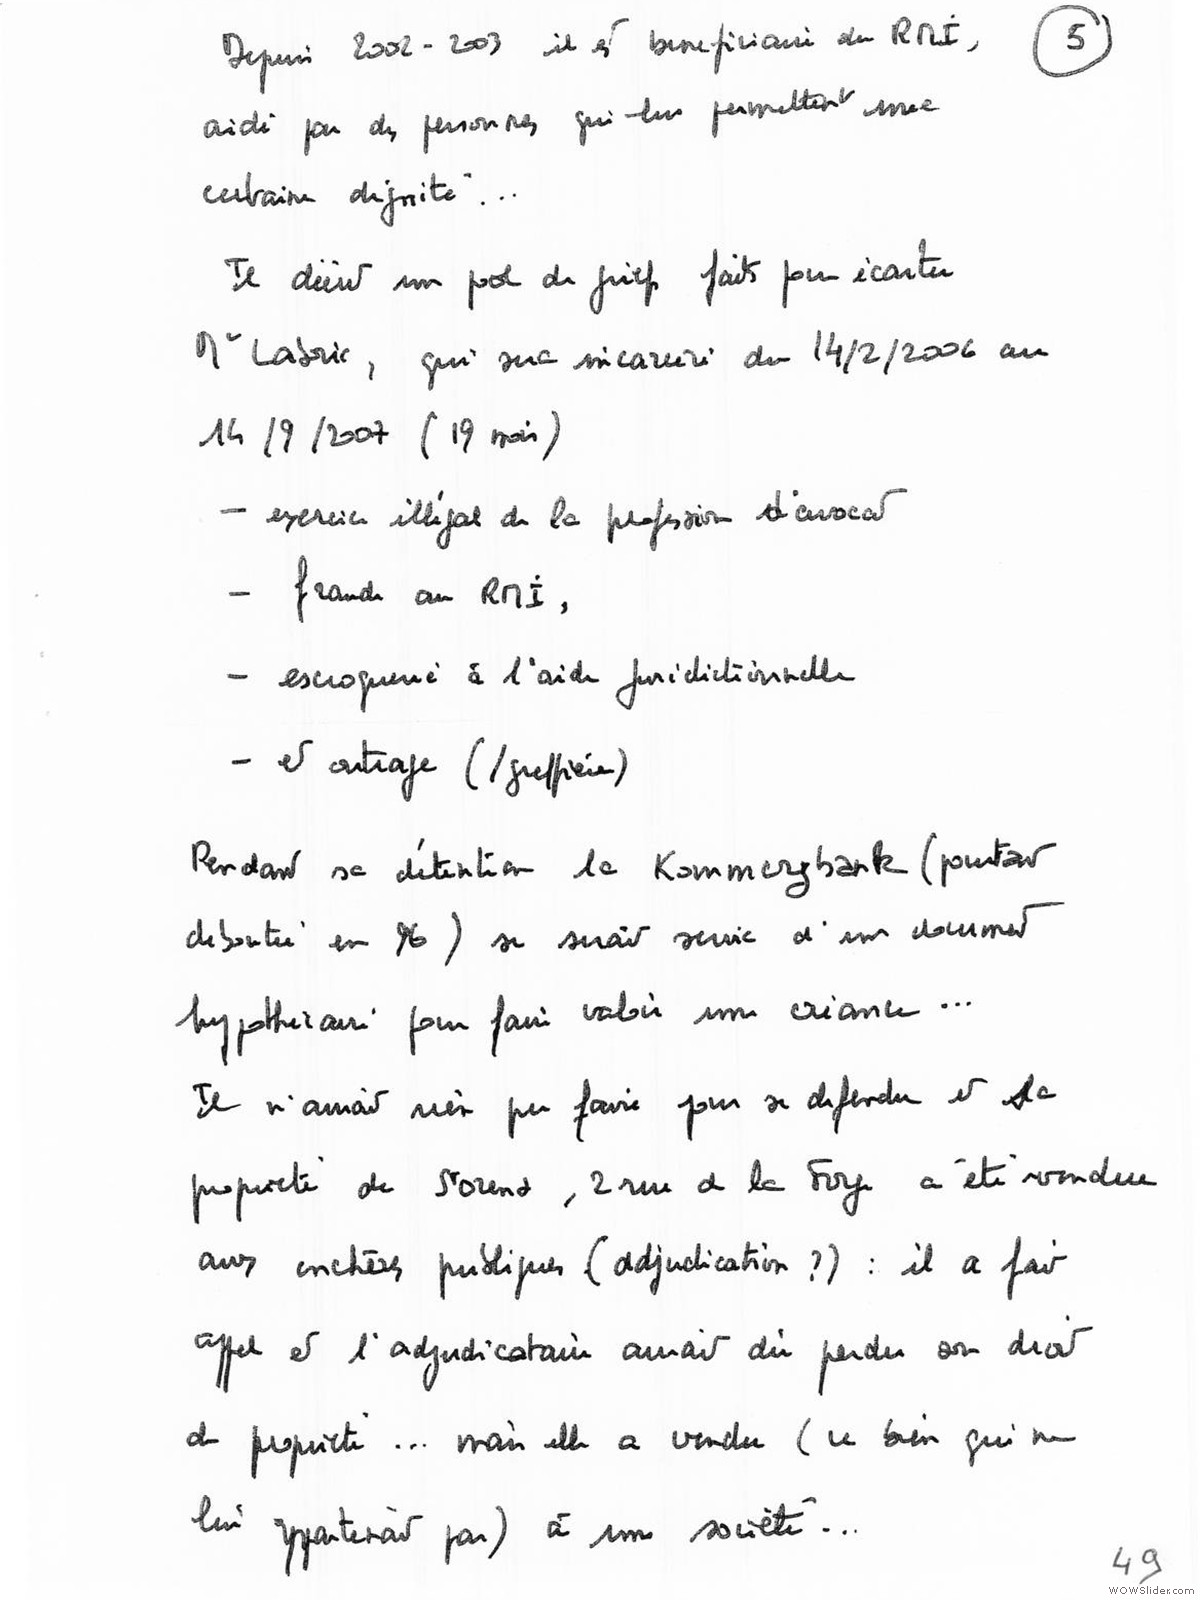 Depuis 2002-2003 il est bénéficiaire du RMI, 5
aidé par des personnes qui lui permettent une
certaine dignité...
Il décrit un pool de griefs faits pour écarter
Mr Laborie, qui sera incarcéré du 14/2/2006 au
14/9/2007 (19 mois)
- exercice illégal de la profession d'avocat
- fraude au RMI,
- escroquerie à l'aide juridictionnelle
- et outrage (/greffière)
Pendant sa détention la Kommerzbank (pourtant
déboutée en 96) se serait servie d'un document
hypothécaire pour faire valoir une créance...
Il n'aurait rien pu faire pour se défendre et sa
propriété de St Orens, 2 rue de la Forge a été vendue
aux enchères publiques (adjudication ?) : il a fait
appel et l'adjudicataire aurait dû perdre son droit
de propriété... mais elle a vendu (ce bien qui ne
lui appartenait pas) à une société...
49
WOWSlider.com